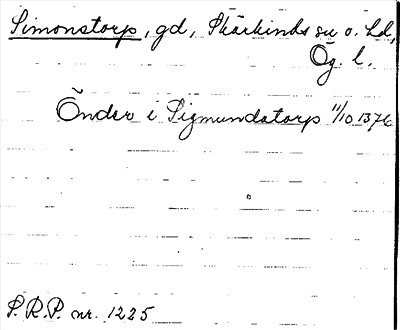 Simonstorp, gd, Skärkinds sn o. hd,
Ög. l.
Önder i Sigmundatorp 11/10 1376
S.R.P. nr. 1225